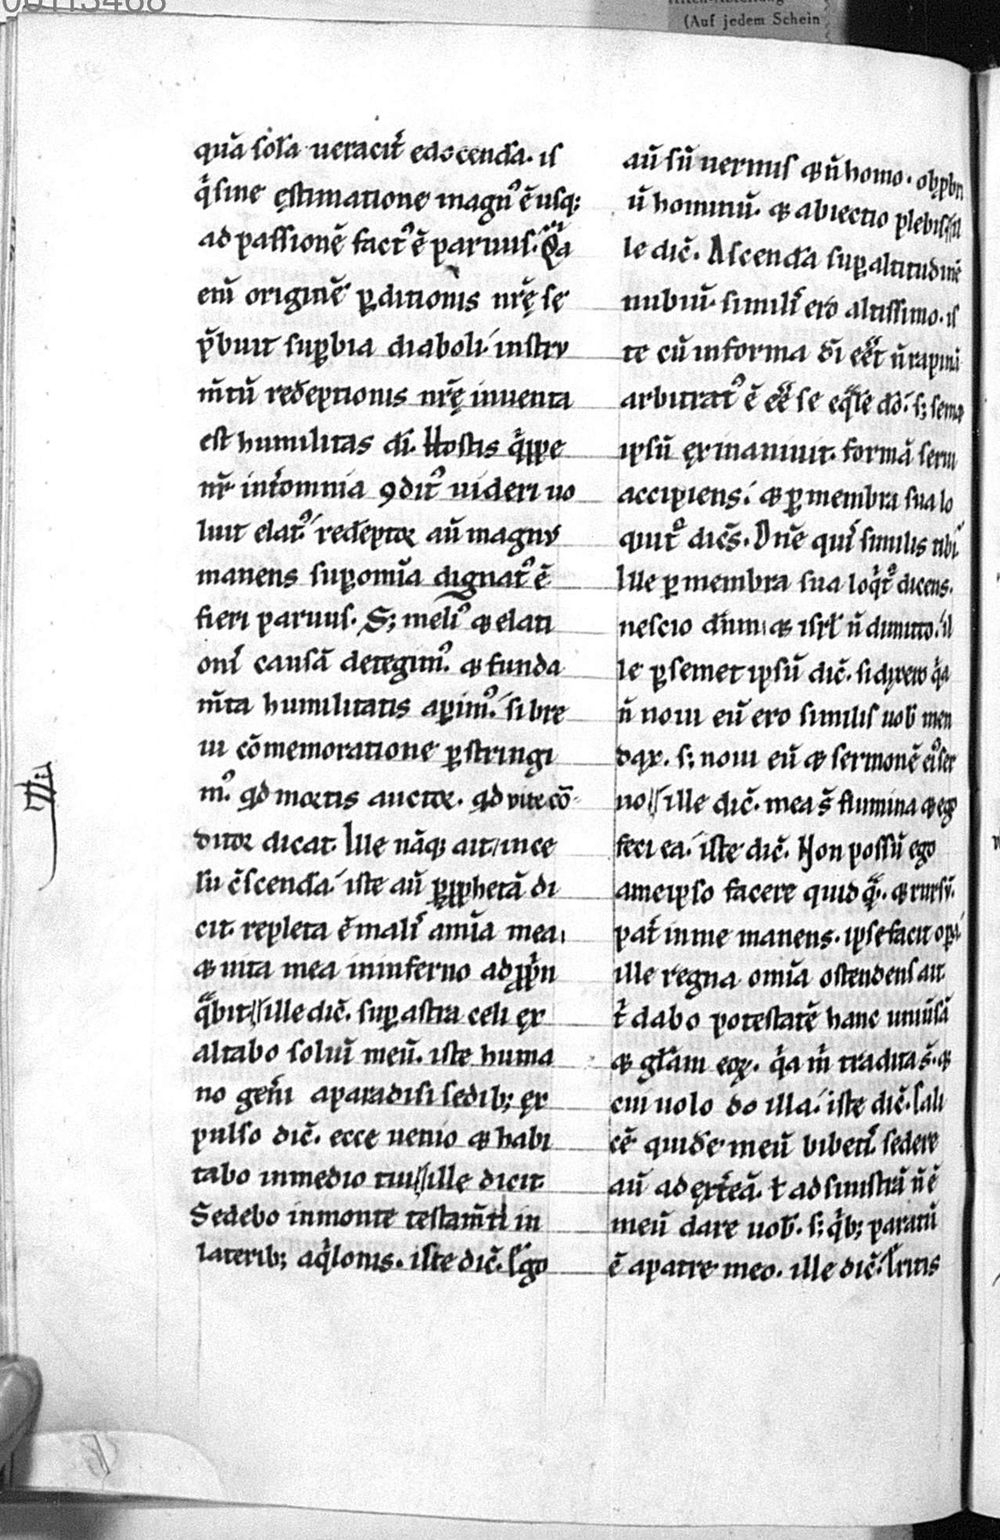 00113468
(Auf jedem Schein
quā sola ueracit̄ edocenda. is
q̇ sine ęstimatione magn᷒ ē usq;
ad passionē fact᷒ ē paruus. Q̇a
eni̅ origine̅ ꝑditionis nr̄ę se
p̄buit suꝑbia diaboli. instru
m̄tū redēptionis nr̄ę inuenta
est humilitas dī. Hostis q̇ppe
nr̄ int̄ omnia ꝯdit᷒ uideri uo
luit elat᷒. redēptor aū magnus
manens suꝑ omīa dignat᷒ ē
fieri paruus. S; meli᷒ & elati
onis causā detegim᷒. & funda
m̄ta humilitatis aꝑim᷒. si bre
ui cōmemoratione ꝑstringi
m᷒. qd mortis auctor. qd uite cō
ditor dicat. Ille nāq; ait. in ce
lū c̄scendā. iste aū ꝑ ꝓphetā di
cit. repleta ē malis anīa mea.
& uita mea in inferno adp̄pin
q̄bit. ille dic̄. suꝑ astra celi ex
altabo soliū meū. iste huma
no gen̄i a paradisi sedib; ex
pulso dic̄. ecce uenio & habi
tabo in medio tui. ille dicit.
Sedebo in monte testam̄ti in
laterib; aq̇lonis. iste dic̄. Ego
aū sū uermis & ñ homo. obprbri
ū hominū. & abiectio plebis. il
le dic̄. Ascendā suꝑ altitudinē
nubiū. similis ero altissimo. is
te cū in forma dī eēt ñ rapinā
arbitrat᷒ ē eē se eq̄lē dō. s; semet
ipsū exinaniuit. formā serui
accipiens. & ꝑ membra sua lo
quit᷒ dicēs. Dn̄e quis similis tibi.
Ille ꝑ membra sua loq̇t᷒ dicens.
nescio dn̄m & isrl̄ ñ dimitto. il
le ꝑ semet ipsū dic̄. si dixero q̇a
ñ noui eū ero similis uob̄ men
dax. s; noui eū & sermonē ei᷒ ser
uo. ille dic̄. mea s̄ flumina & ego
feci ea. iste dic̄. Non possū ego
a me ipso facere quidq̄. & rursū.
pat̄ in me manens. ipse facit oꝑa.
ille regna omīa ostendens ait.
t̄ dabo potestatē hanc uniūsā
& gl̄am eorꝫ. q̇a m̄ tradita s̄. &
cui uolo do illa. iste dic̄. Cali
cē quidē meū bibetis. sedere
aū ad dext̄eā. ł ad sinistrā ñ ē
meū dare uob̄. s; q̇b; paratū
ē a patre meo. ille dic̄. Eritis